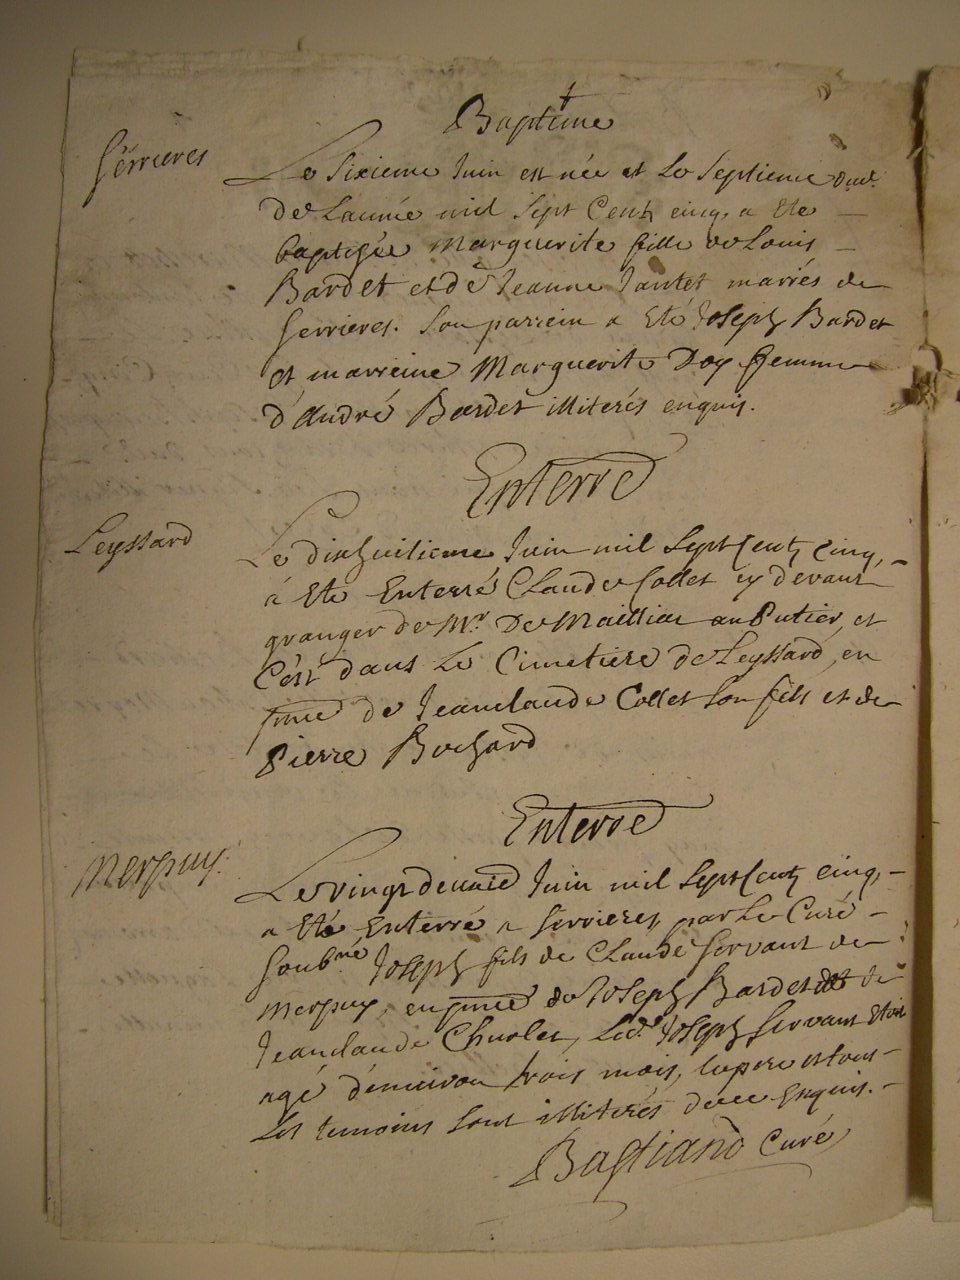 Baptême
Serrieres
Le Sixieme Juin est née et Le Septieme dud.
de Lannée mil Sept Cent cinq, a Ete
baptisée Marguerite fille de Louis
Bardet et de Jeanne Jantet mariés de
Serrieres. Son parrein a Eté Joseph Bardet
et marreine Marguerite Doy femme
d'André Bardet illiterés enquis.
Enterré
Leyssard
Le dixhuitieme Juin mil Sept Cent Cinq,
a Ete Enterré Claude Collet cy devant
granger de Mr. De Mailliac au Putier, et
C'est dans Le Cimetiere de Leyssard, en
pnce de Jeanclaude Collet Son fils et de
Pierre Bochard
Enterré
Merpuy.
Le vingt Juin mil Sept Cent Cinq,
a Eté Enterré a Serrieres, par Le Curé
Soubné Joseph fils de Claude Servant de
Merpuy, en pnce de Joseph Bardet de
Jeanclaude, Led. Joseph Servant Etoit
agé d'environ trois mois, Le pere et tous
Les temoins Sont illiterés de ce Enquis.
Bastiand Curé